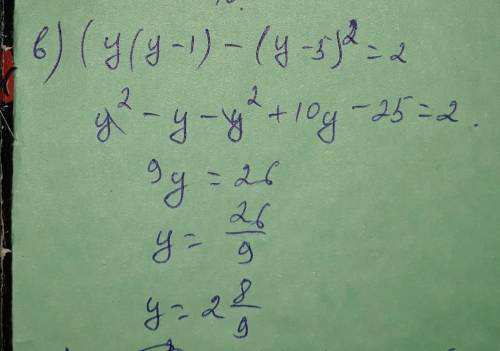 в) (y(y-1) - (y-5)² = 2
y² - y - y² + 10y - 25 = 2.
9y = 26
y = 26/9
y = 2 8/9